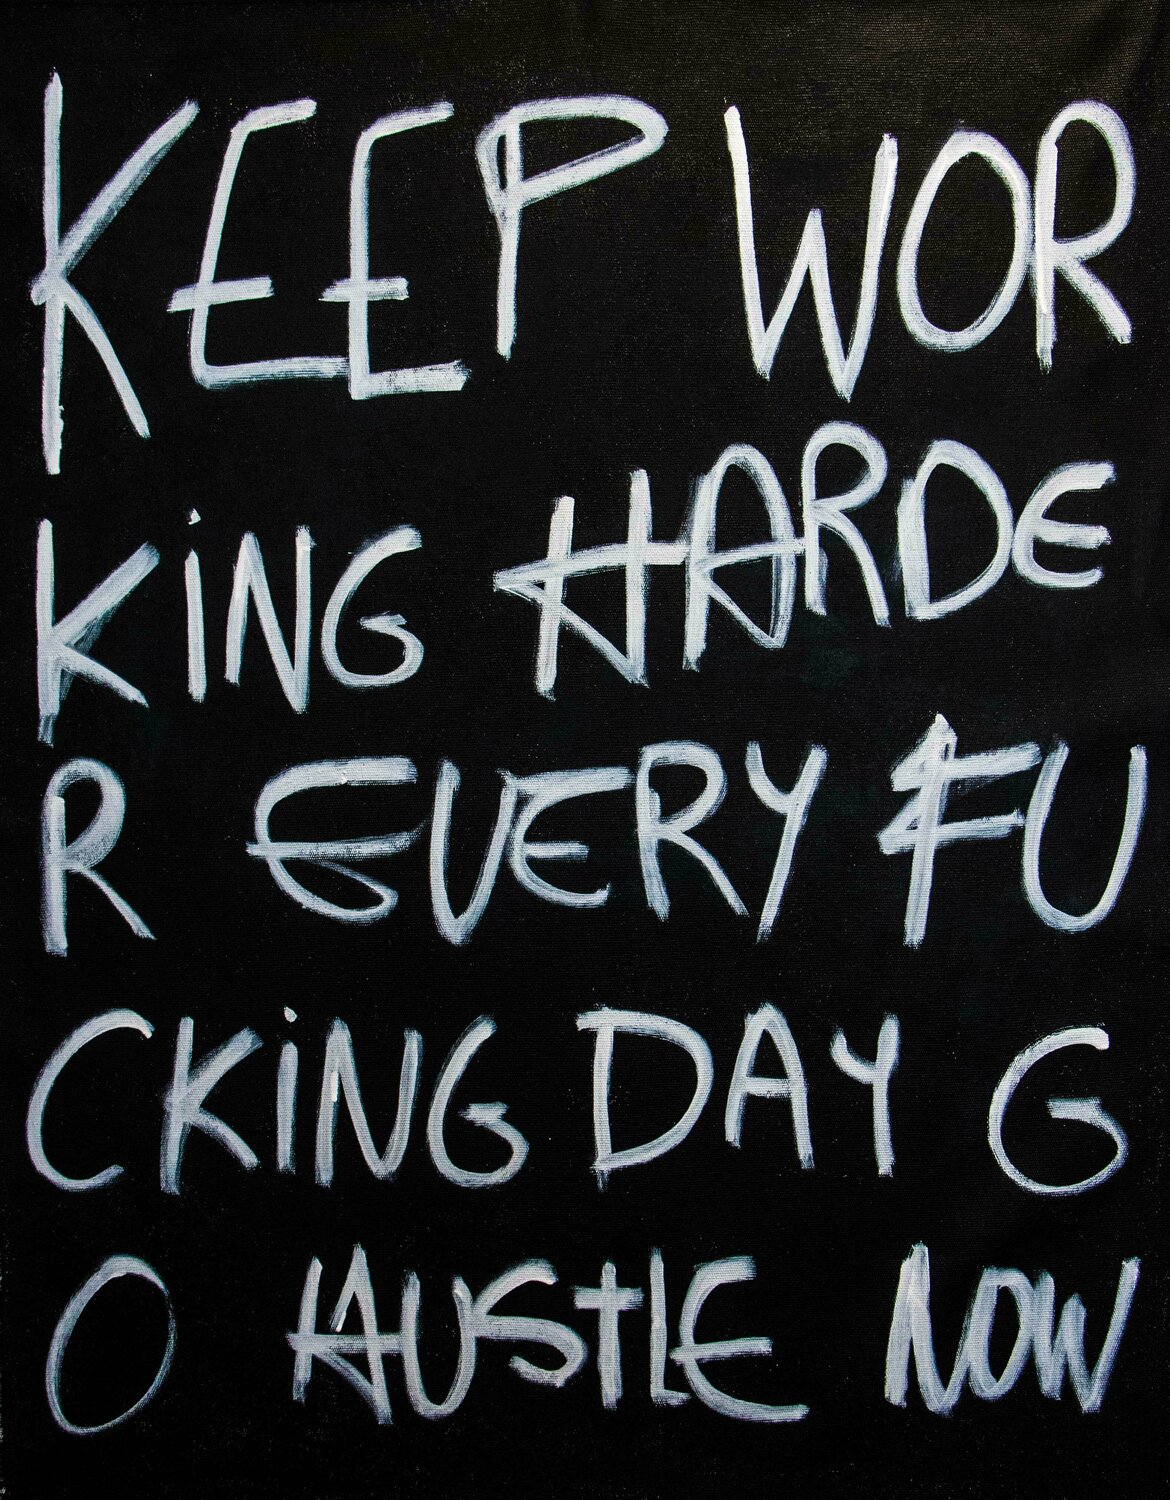 KEEP WOR
KiNG HARDE
R EVERY FU
CKiNG DAY G
O HUSTLE NOW